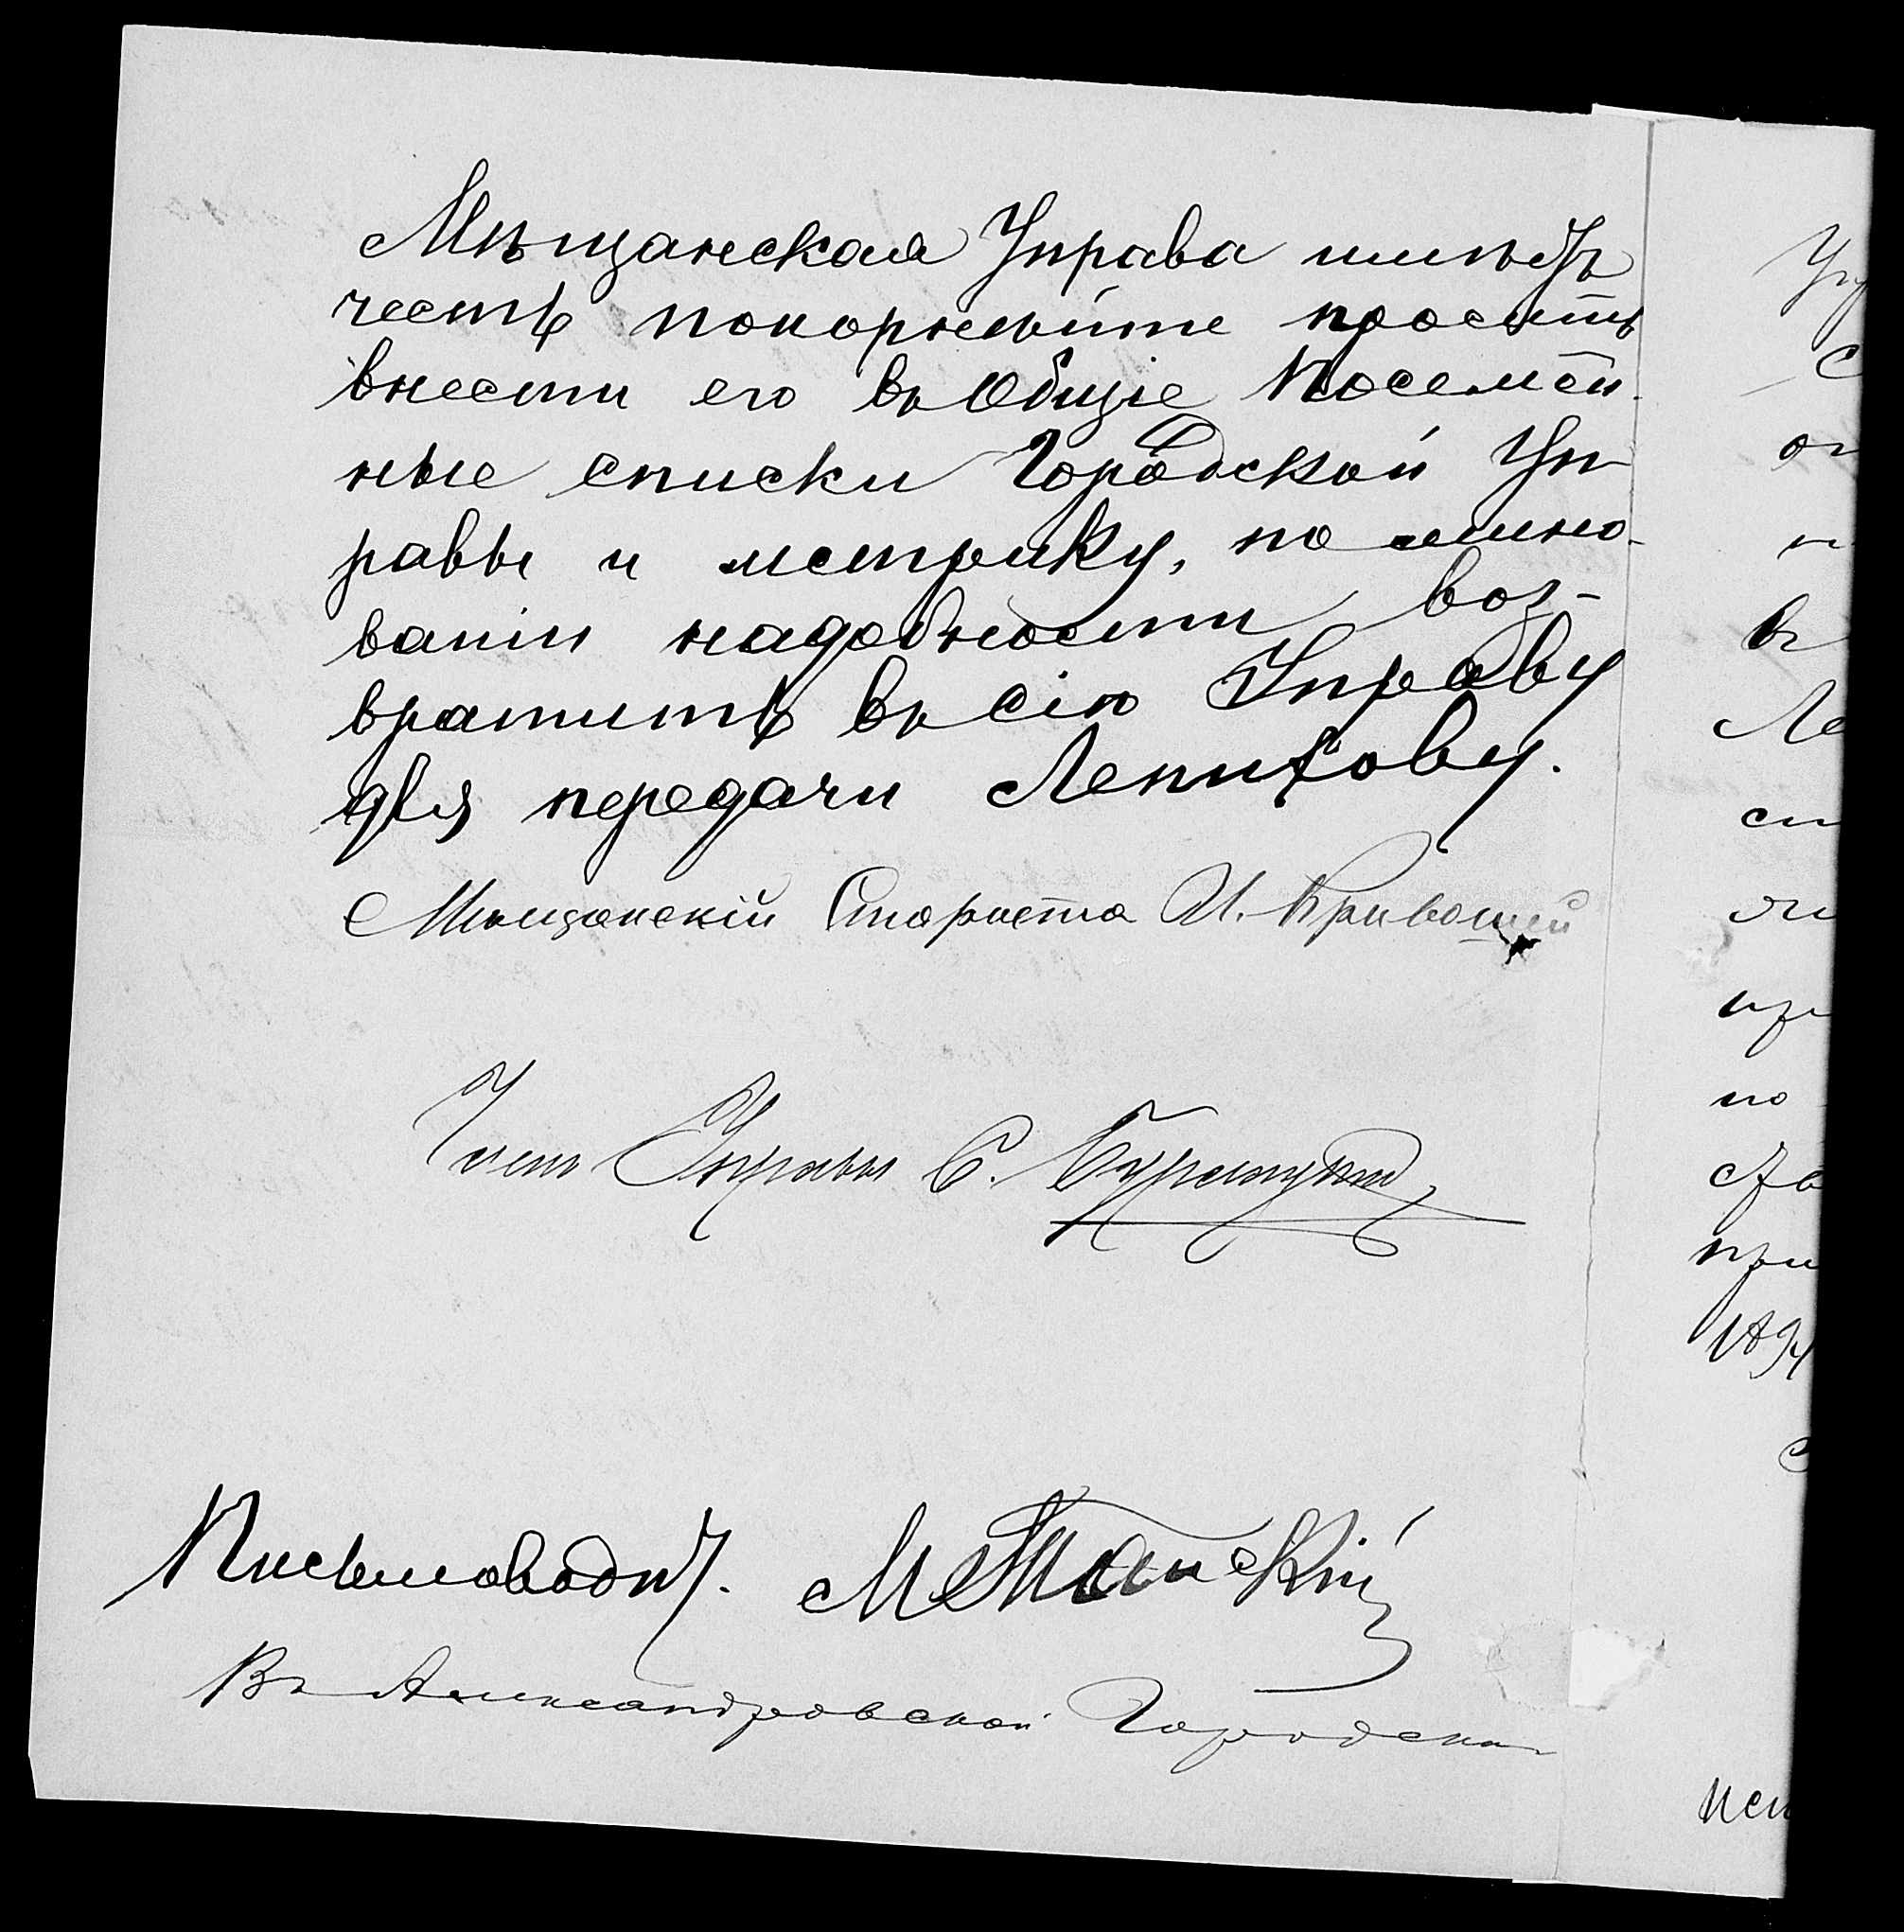 Мѣщанская Управа имѣетъ
честь покорнейше просить
внести его въ Общіе Посемей-
ные списки Городской Уп-
равы и метрику, по мино-
ваніи надобности воз-
вратить въ сію Управу
для передачи Лепихову.
Мѣщанскій Староста И. Кривошей
Членъ Управы С.
Письмоводит.
Въ Александровской Городской